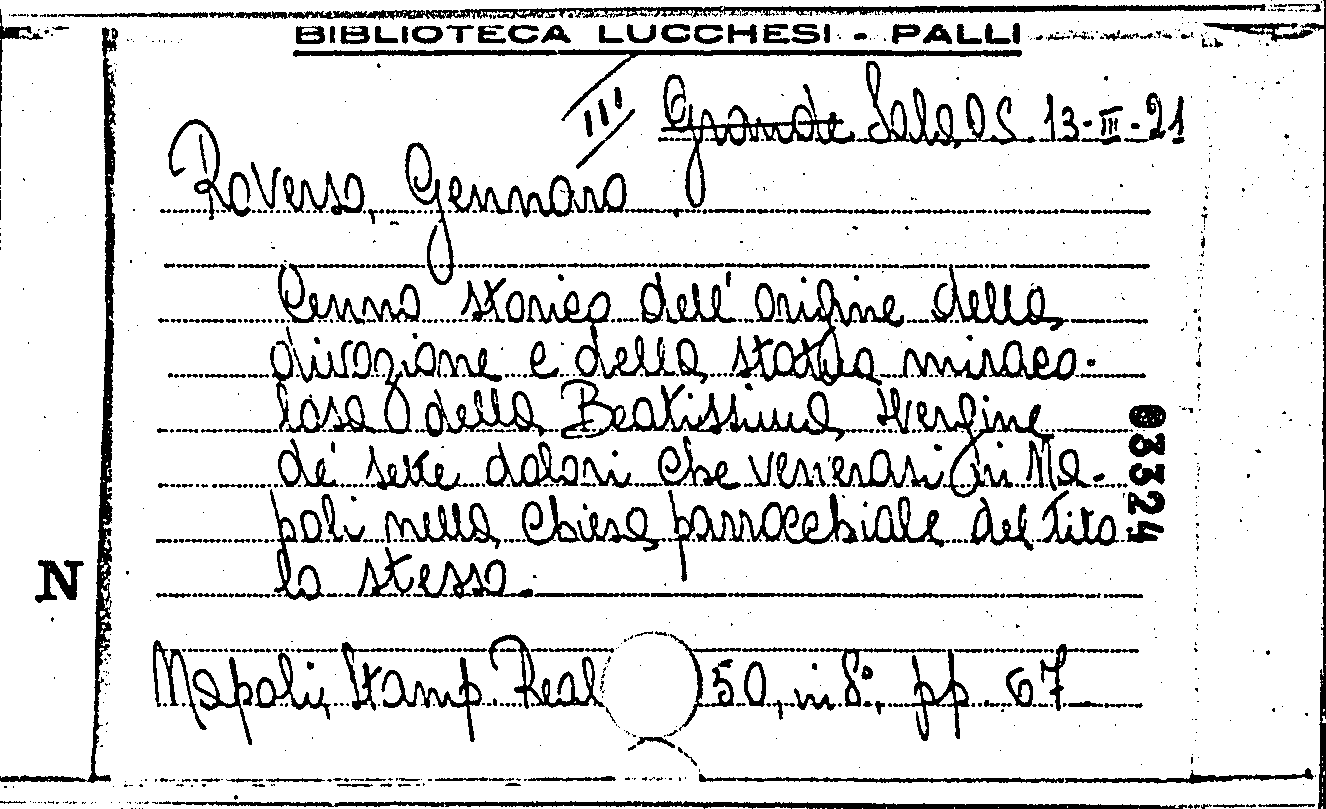 BIBLIOTECA LUCCHESI - PALLI
III Grande Sala, DS. 13-III-21
Roverso, Gennaro
Cenno storico dell' origine della
divozione e della statua miraco-
losa della Beatissima Vergine
de' sette dolori che venerasi in Na-
poli nella chiesa parrocchiale del tito
lo stesso.
Napoli, Stamp. Real 50, in 8°, pp. 67
03324
N